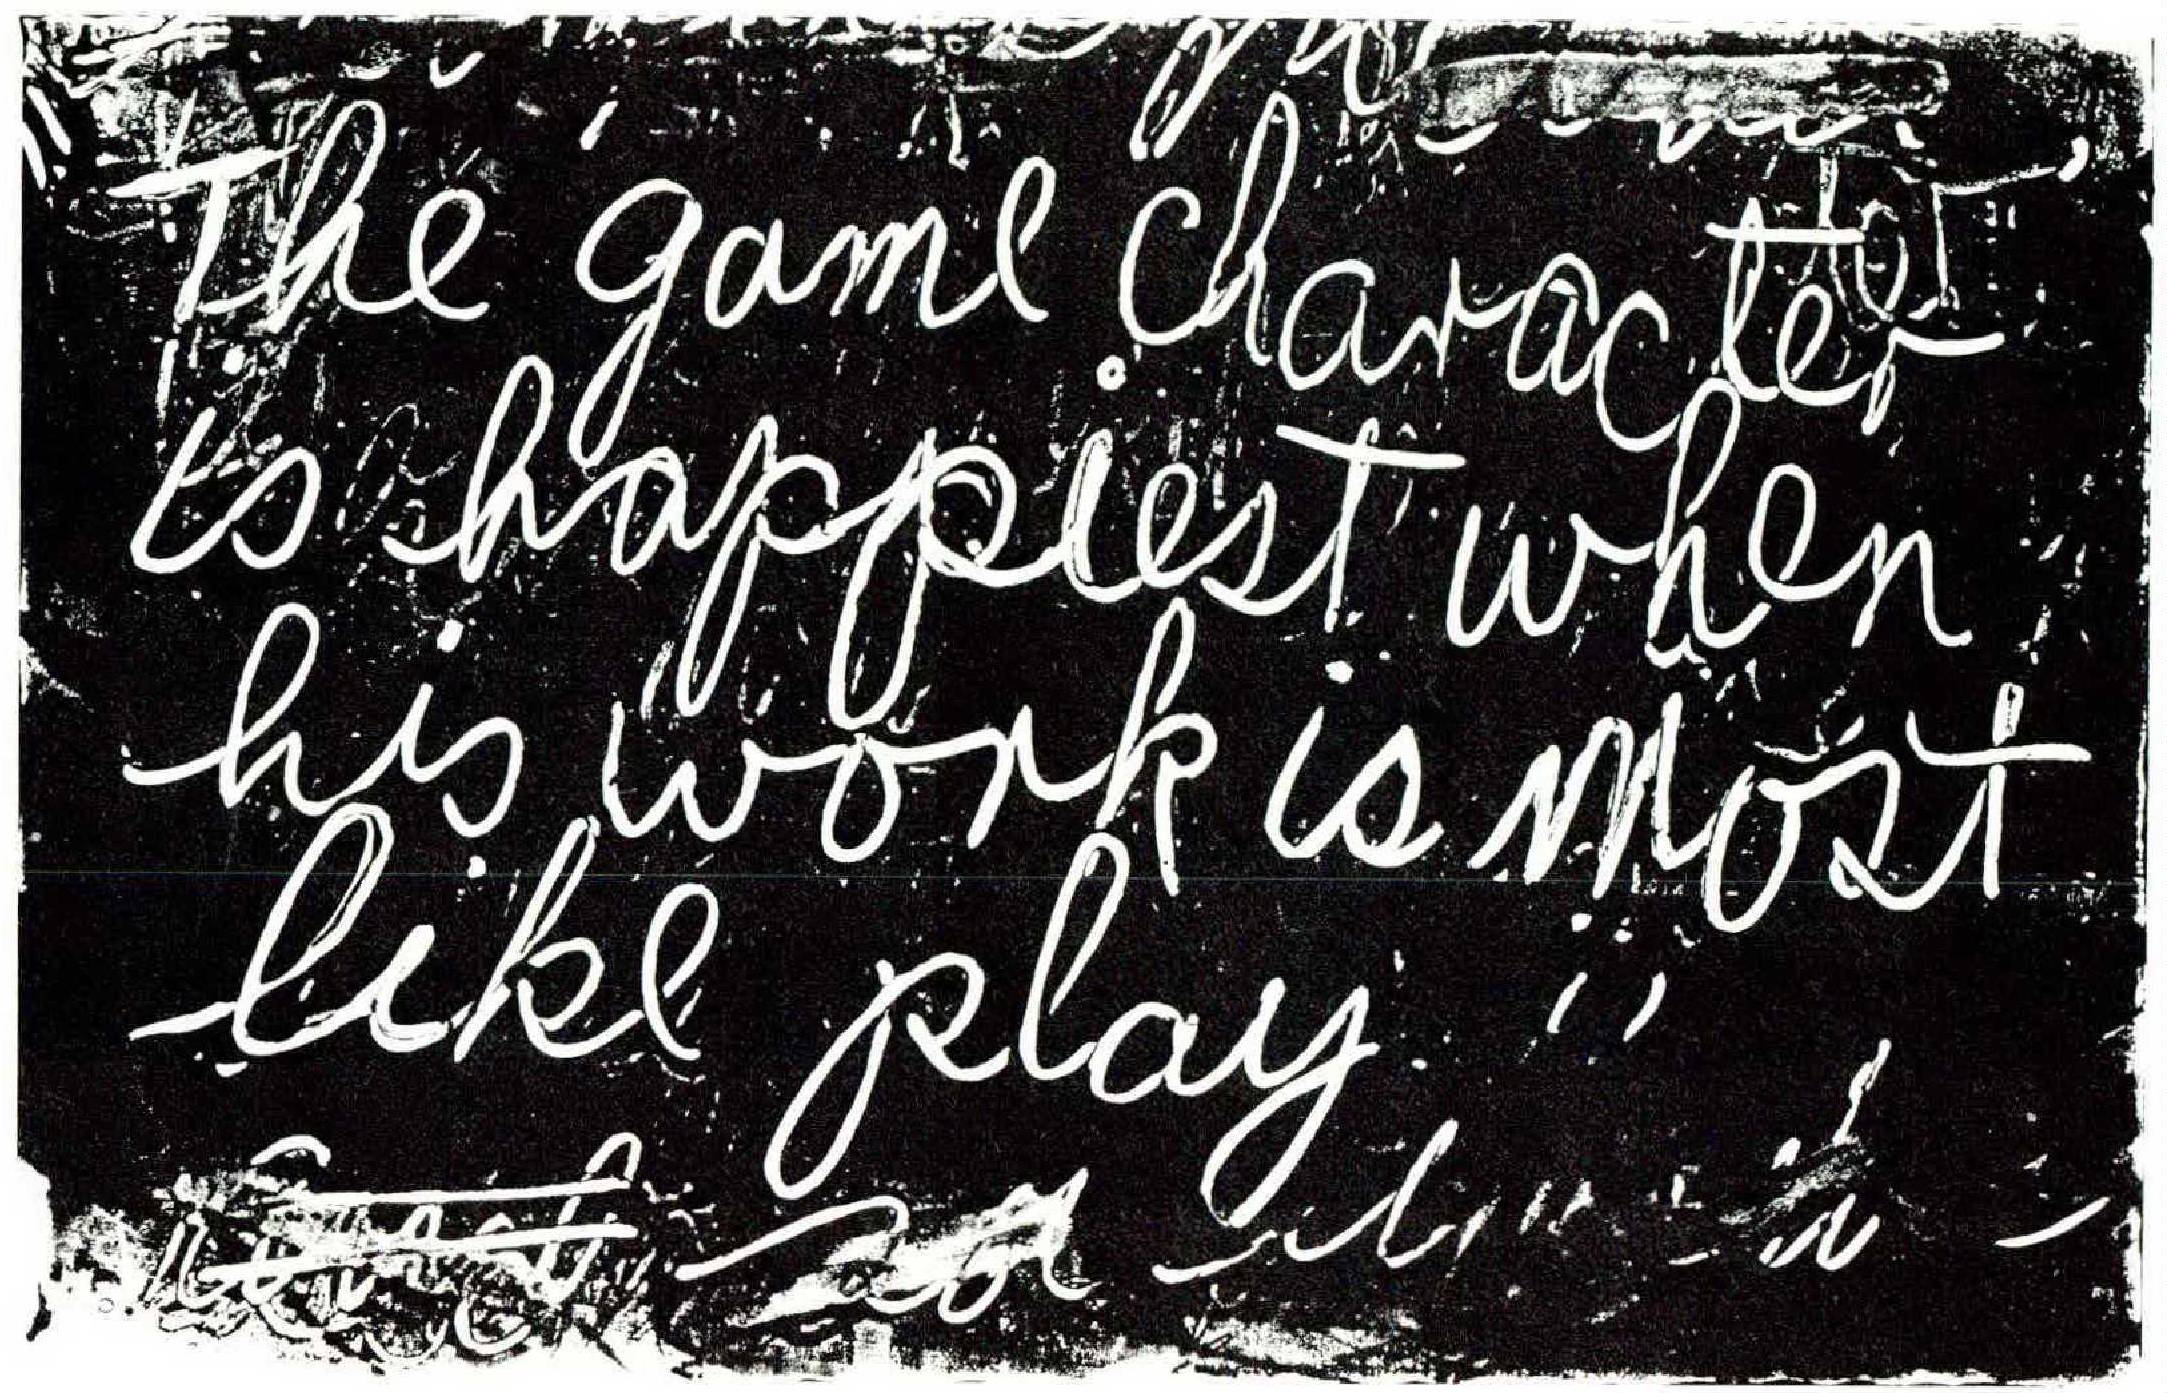 The game character
is happiest when
his work is most
like play "